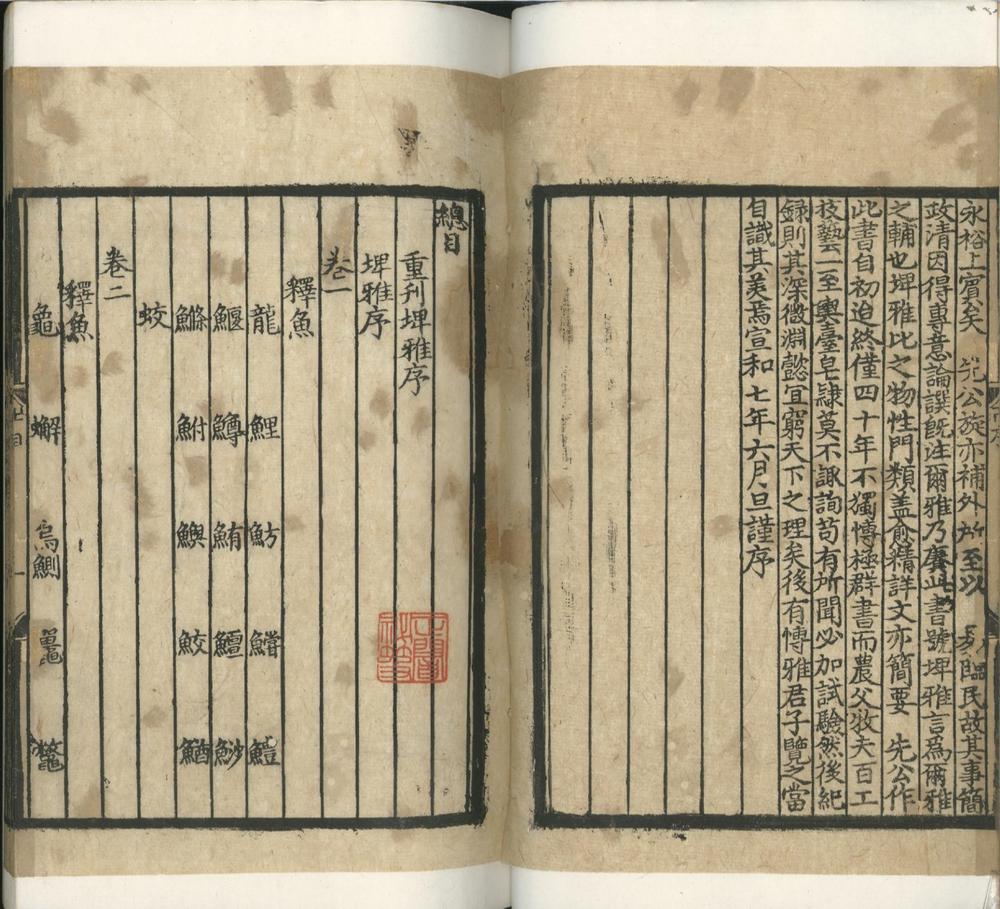 永裕上賓矣 先公旋亦補外所至以 臨民故其事簡
政清因得專意論譔既注爾雅乃賡此書號埤雅言爲爾雅
之輔也埤雅比之物性門類盖愈精詳文亦簡要 先公作
此書自初迨終僅四十年不獨博極群書而農父牧夫百工
技藝下至輿臺皂隷莫不諏詢苟有所聞必加試驗然後紀
録則其深微淵懿宜窮天下之理矣後有博雅君子覽之當
自識其美焉宣和七年六月旦謹序
總目
重刊埤雅序
埤雅序
卷一
釋魚
龍 鯉 魴 鱨 鱧
鰋 鱒 鮪 鱣 魦
鰷 鮒 鱮 鮫 鰌
蛟
卷二
釋魚
龜 蠏 烏鰂 鼉 鼈